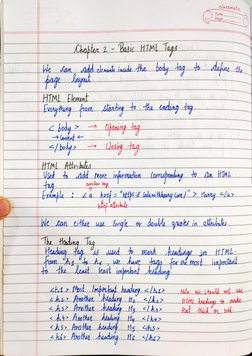 classmate
Date
Page
Chapter 2 - Basic HTML Tags
We can add elements inside the body tag to define the
page layout
HTML Element
Everything from starting to the ending tag.
< body > → Opening tag
→ Content ←
</ body> → Closing tag
HTML Attributes
Used to add more information corresponding to an HTML
tag
Example : < a href = "https:// codewithharry.com/" > Harry </a>
href attribute
We can either use single or double quotes in attributes
The Heading Tag
Heading tag is used to mark headings in HTML.
from h1 to h6, we have tags for the most important
to the least important heading
<h1> Most Important heading </h1>
<h2> Another heading H2 </h2>
<h3> Another heading H3 </h3>
<h4> Another heading H4 </h4>
<h5> Another heading H5 </h5>
<h6> Another heading H6 </h6>
Note: We should not use
HTML headings to make
text thick or bold